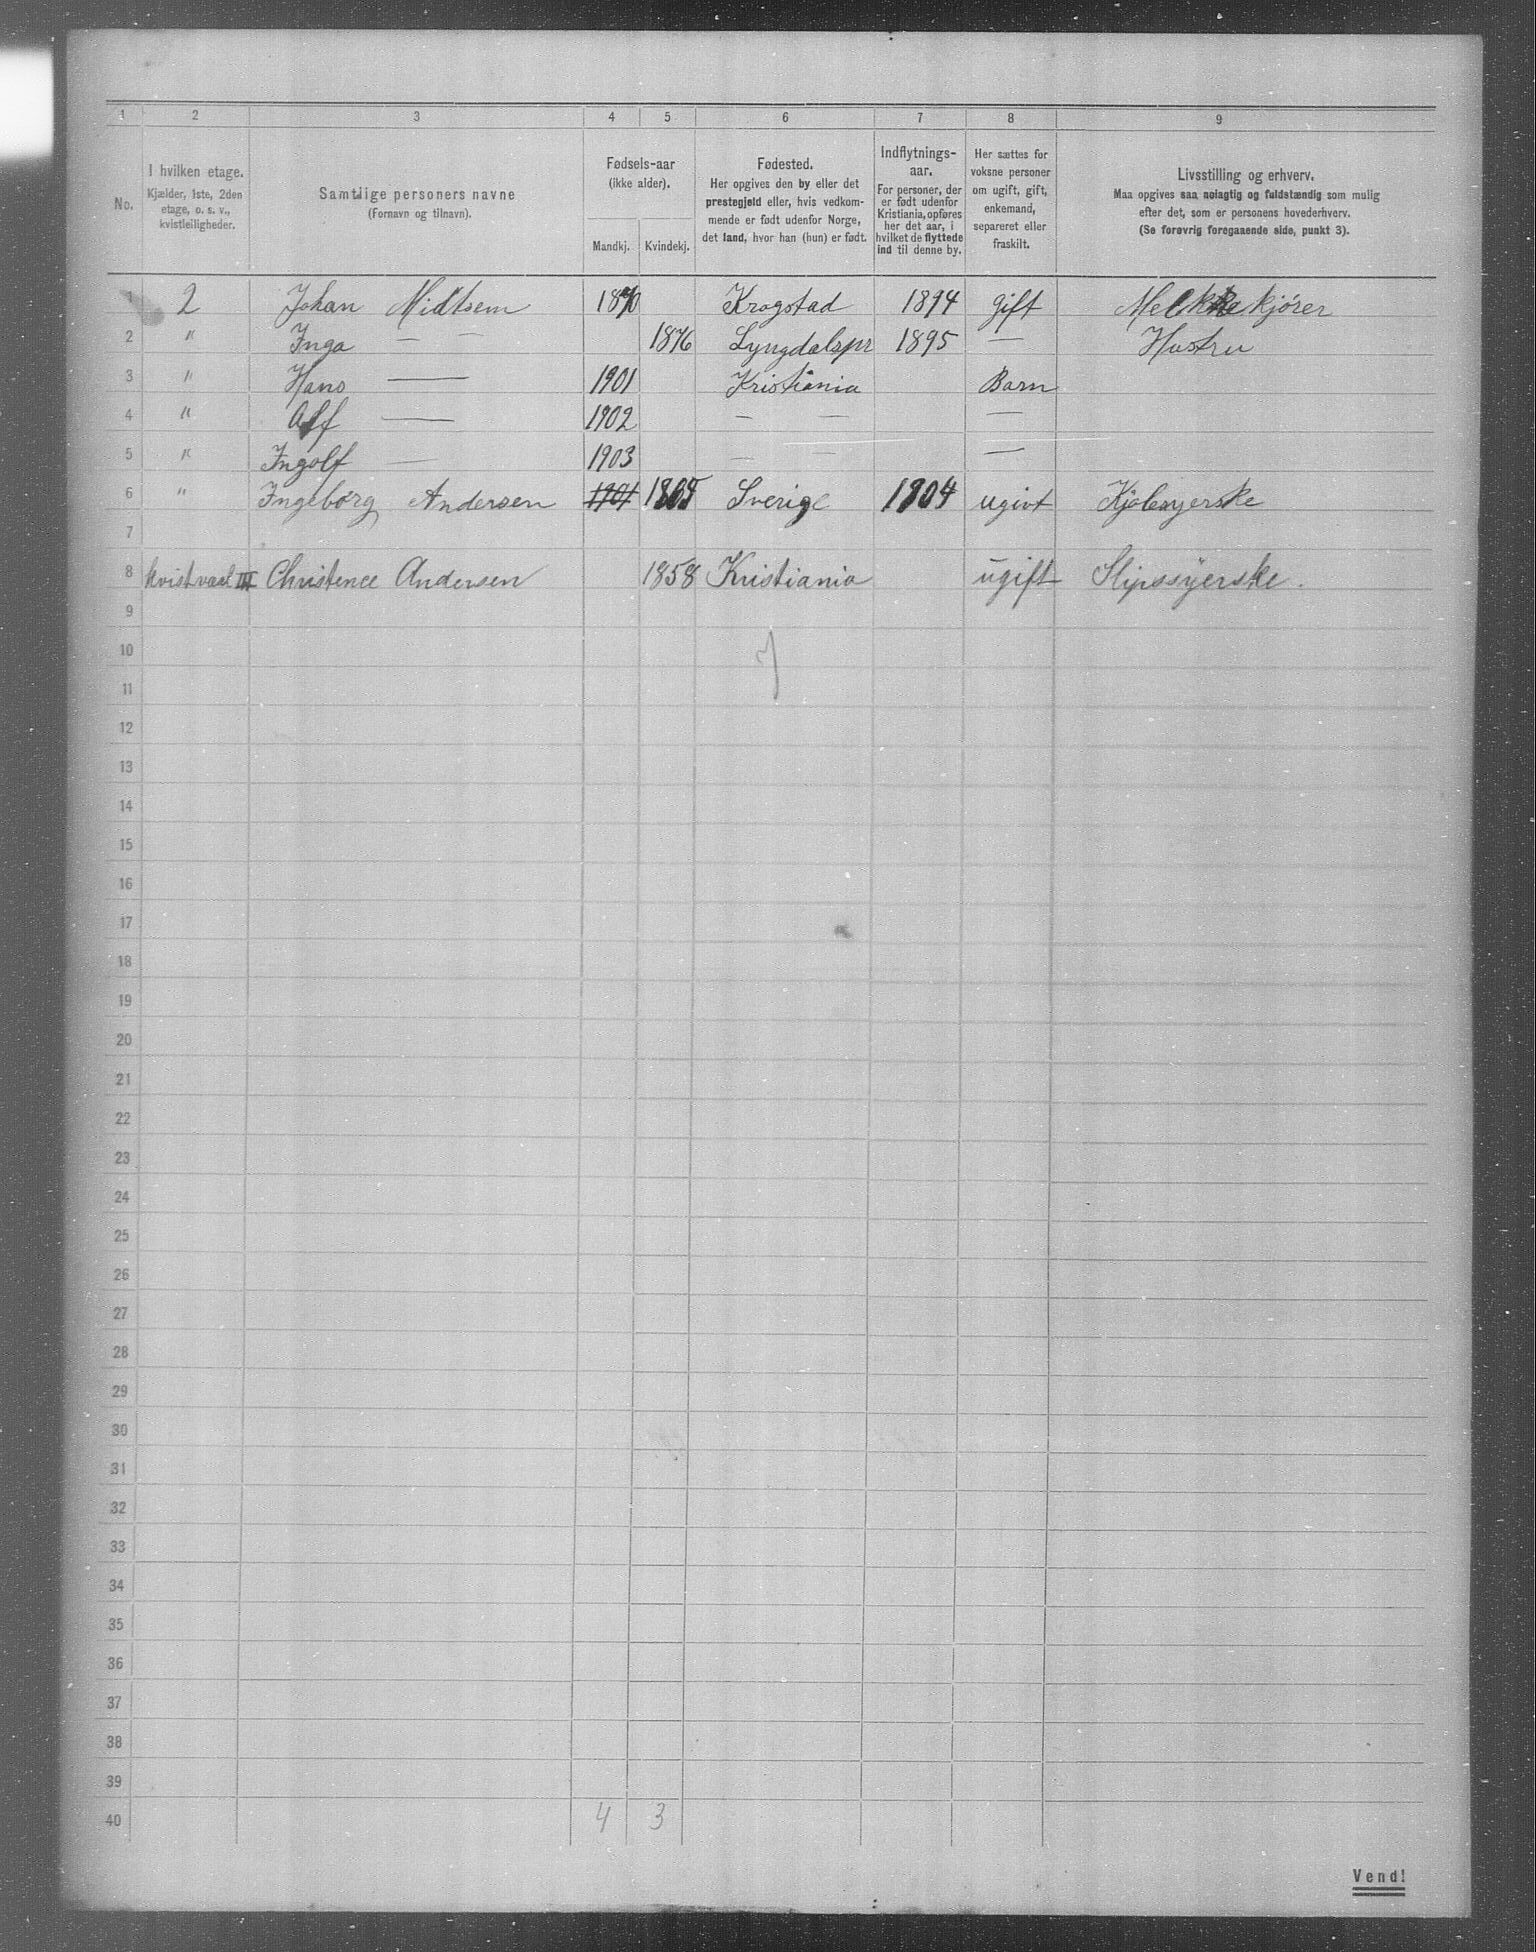 1 2 3 4 5 6 7 8 9
No. I hvilken etage. Kjælder, 1ste, 2den etage, o. s. v., kvistleiligheder.
Samtlige personers navne (Fornavn og tilnavn).
Fødsels-aar (ikke alder). Mandkj. Kvindekj.
Fødested. Her opgives den by eller det prestegjeld eller, hvis vedkommende er født udenfor Norge, det land, hvor han (hun) er født.
Indflytnings-aar. For personer, der er født udenfor Kristiania, opføres her det aar, i hvilket de flyttede ind til denne by.
Her sættes for voksne personer om ugift, gift, enkemand, separeret eller fraskilt.
Livsstilling og erhverv. Maa opgives saa nøiagtig og fuldstændig som mulig efter det, som er personens hovederhverv. (Se forøvrig foregaaende side, punkt 3).
1 2 Johan Midtsem 1870 Krogstad 1894 gift Melkekjører
2 " Inga — 1876 Lyngdalspr 1895 — Hustru
3 " Hans — 1901 Kristiania Barn
4 " Alf — 1902 — — —
5 " Ingolf — 1903 — — —
6 " Ingeborg Andersen 1901 1865 Sverige 1904 ugivt Kjolesyerske
7
8 kvistvaal III Christence Andersen 1858 Kristiania ugift Slipssyerske.
9
10
11
12
13
14
15
16
17
18
19
20
21
22
23
24
25
26
27
28
29
30
31
32
33
34
35
36
37
38
39
40 4 3
Vend!